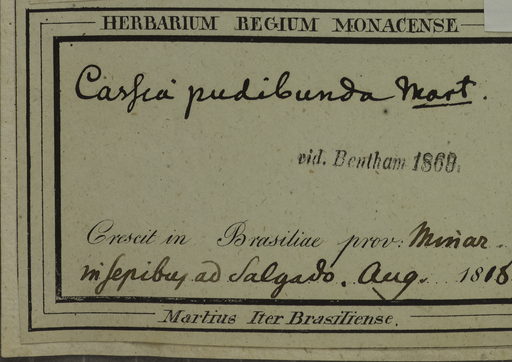 HERBARIUM REGIUM MONACENSE
Cassia pudibunda Mart.
vid. Bentham 1869.
Crescit in Brasiliae prov: Minar.
in sepibus ad Salgado. Aug. 1818
Martius Iter Brasiliense.